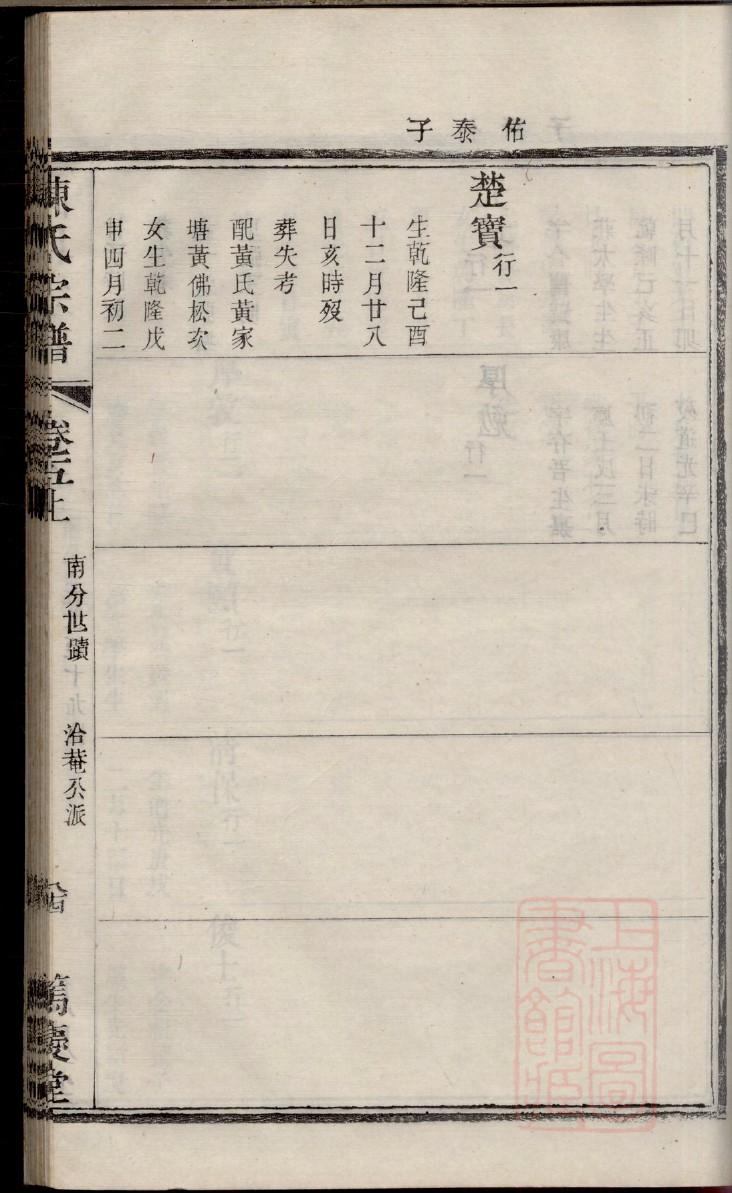 佑泰子
楚寶行一
生乾隆己酉
十二月廿八
日亥時歿
葬失考
配黃氏黃家
塘黃佛松次
女生乾隆戊
申四月初二
陳氏宗譜
卷五上
南分世蹟
洽菴公派
篤慶堂
上海圖
書館藏